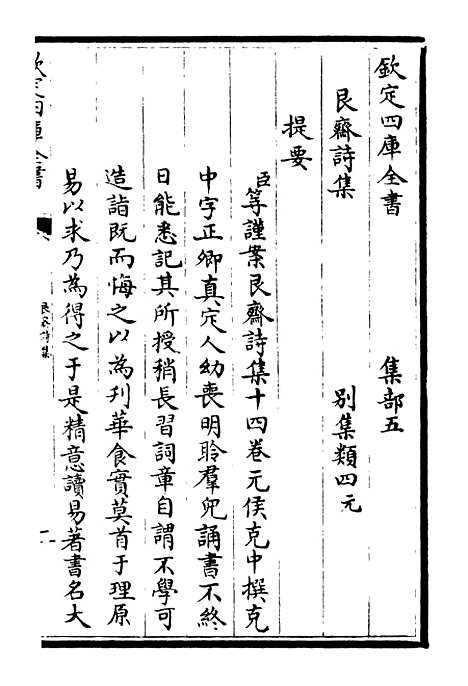 欽定四庫全書　集部五
艮齋詩集　別集類四元
提要
臣等謹案艮齋詩集十四卷元侯克中撰克
中字正卿真定人幼喪明聆羣兒誦書不終
日能悉記其所授稍長習詞章自謂不學可
造詣既而悔之以為刋華食實莫首于理原
易以求乃為得之于是精意讀易著書名大
欽定四庫全書
艮齋詩集
一